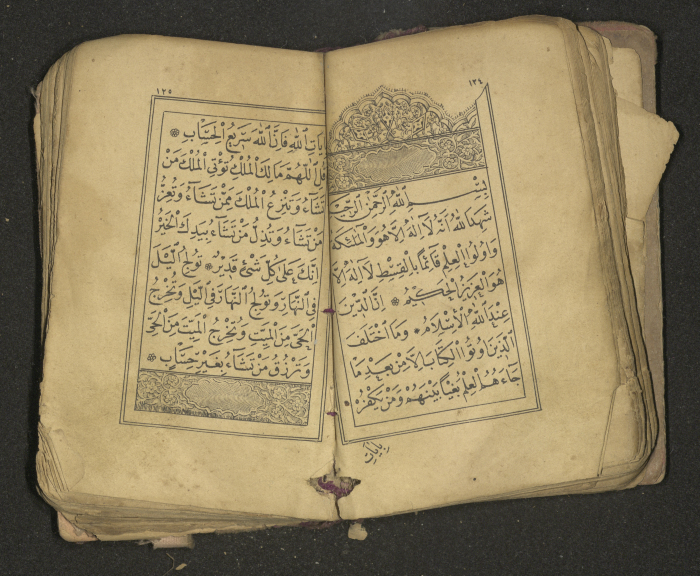 ١٢٤
بِسْمِ اللّٰهِ الرَّحْمٰنِ الرَّحِيمِ
شَهِدَ اللّٰهُ اَنَّهُ لَا اِلٰهَ اِلَّا هُوَ وَالْمَلٰئِكَةُ
وَاُولُوا الْعِلْمِ قَائِمًا بِالْقِسْطِ لَا اِلٰهَ اِلَّا
هُوَ الْعَزِيزُ الْحَكِيمُ ۞ اِنَّ الدِّينَ
عِنْدَ اللّٰهِ الْاِسْلَامُ ۞ وَمَا اخْتَلَفَ
الَّذِينَ اُوتُوا الْكِتَابَ اِلَّا مِنْ بَعْدِ مَا
جَاءَهُمُ الْعِلْمُ بَغْيًا بَيْنَهُمْ وَمَنْ يَكْفُرْ
بِاٰيَاتِ
١٢٥
بِاٰيَاتِ اللّٰهِ فَاِنَّ اللّٰهَ سَرِيعُ الْحِسَابِ ۞
قُلِ اللّٰهُمَّ مَالِكَ الْمُلْكِ تُؤْتِي الْمُلْكَ مَنْ
تَشَاءُ وَتَنْزِعُ الْمُلْكَ مِمَّنْ تَشَاءُ وَتُعِزُّ
مَنْ تَشَاءُ وَتُذِلُّ مَنْ تَشَاءُ بِيَدِكَ الْخَيْرُ
اِنَّكَ عَلٰى كُلِّ شَيْءٍ قَدِيرٌ ۞ تُولِجُ الَّيْلَ
فِي النَّهَارِ وَتُولِجُ النَّهَارَ فِي الَّيْلِ وَتُخْرِجُ
الْحَيَّ مِنَ الْمَيِّتِ وَتُخْرِجُ الْمَيِّتَ مِنَ الْحَيِّ
وَتَرْزُقُ مَنْ تَشَاءُ بِغَيْرِ حِسَابٍ ۞